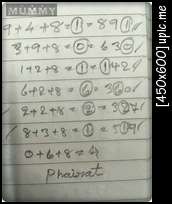 MUMMY
9+4+8=1=891//
3+9+8=0=630//
1+2+8=1=142//
6+2+8=6=360//
2+2+8=2=327//
/8+3+8=1=519//
0+6+8=4
Phairat
[450x600] upic.me